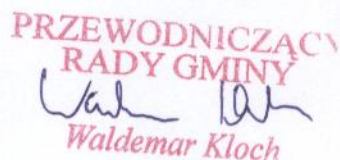 PRZEWODNICZĄCY
RADY GMINY
Waldemar Kloch